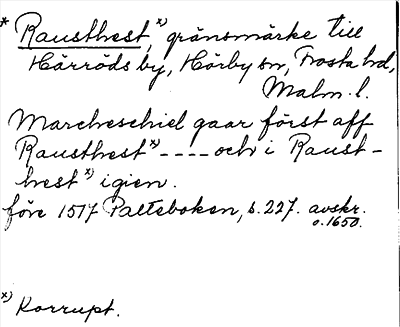 * Rausthest, x) gränsmärke till
Härröds by, Hörby sn, Frosta hd,
Malm. l.
Marcheschiel gaar först aff
Rausthest x) ---- och i Raust-
hest x) igien.
före 1517 Palteboken, s. 227. avskr.
o. 1650.
x) Korrupt.